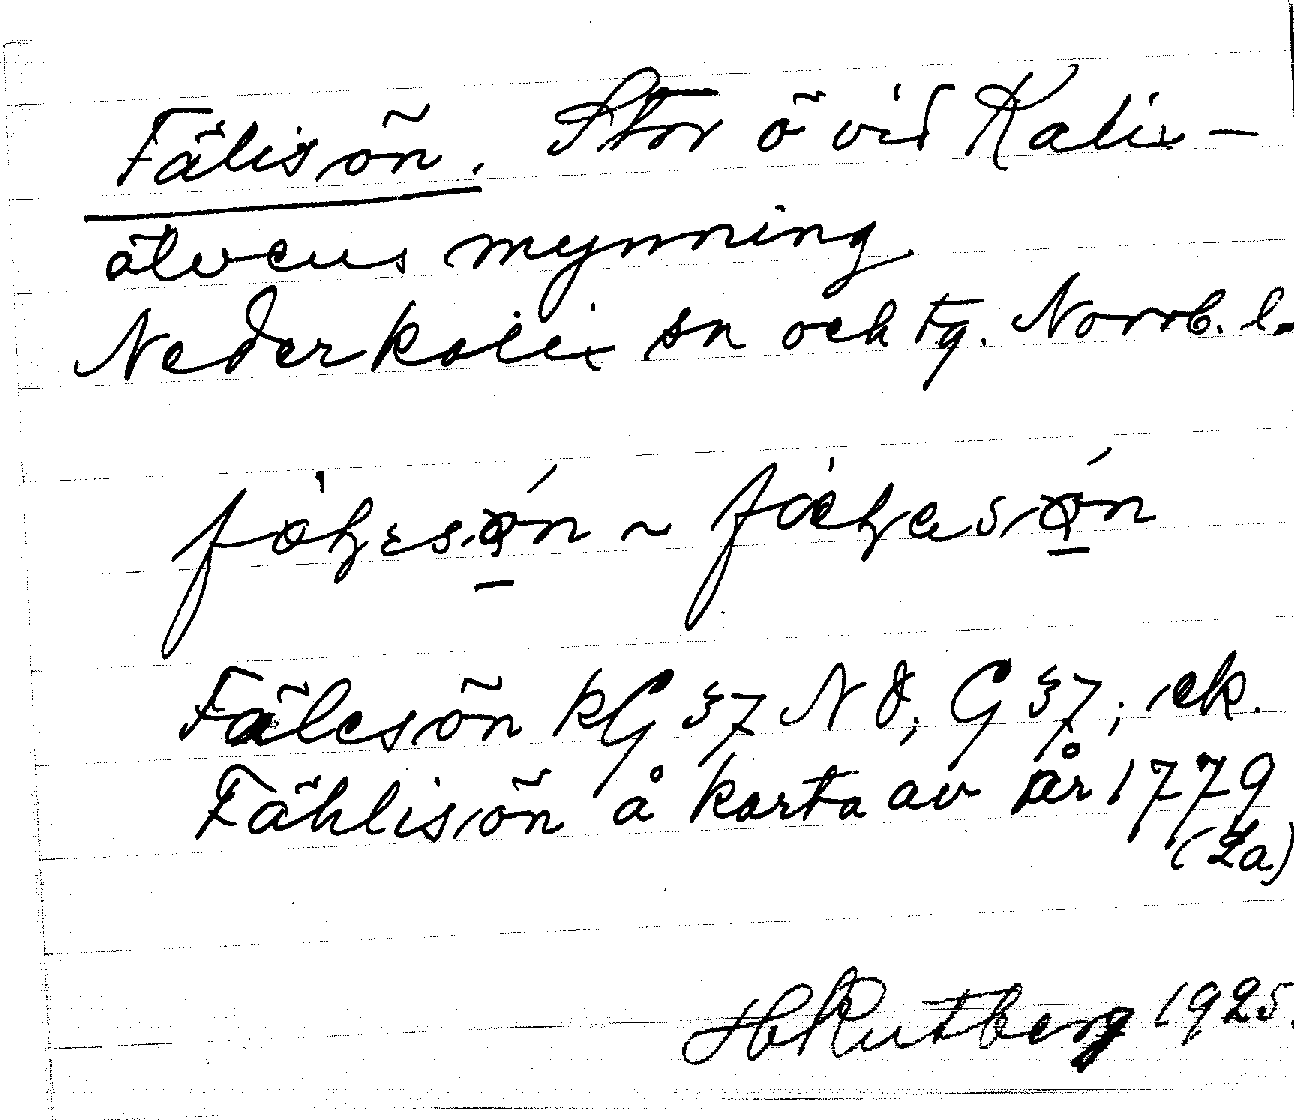 Fälisön. Stor ö vid Kalix-
älvens mynning
Nederkalix sn och tg. Norrb. l.
Fälesön kG 37 NO, G 37; ek.
Fählisön å karta av år 1779
(La)
H Rutberg 1925.